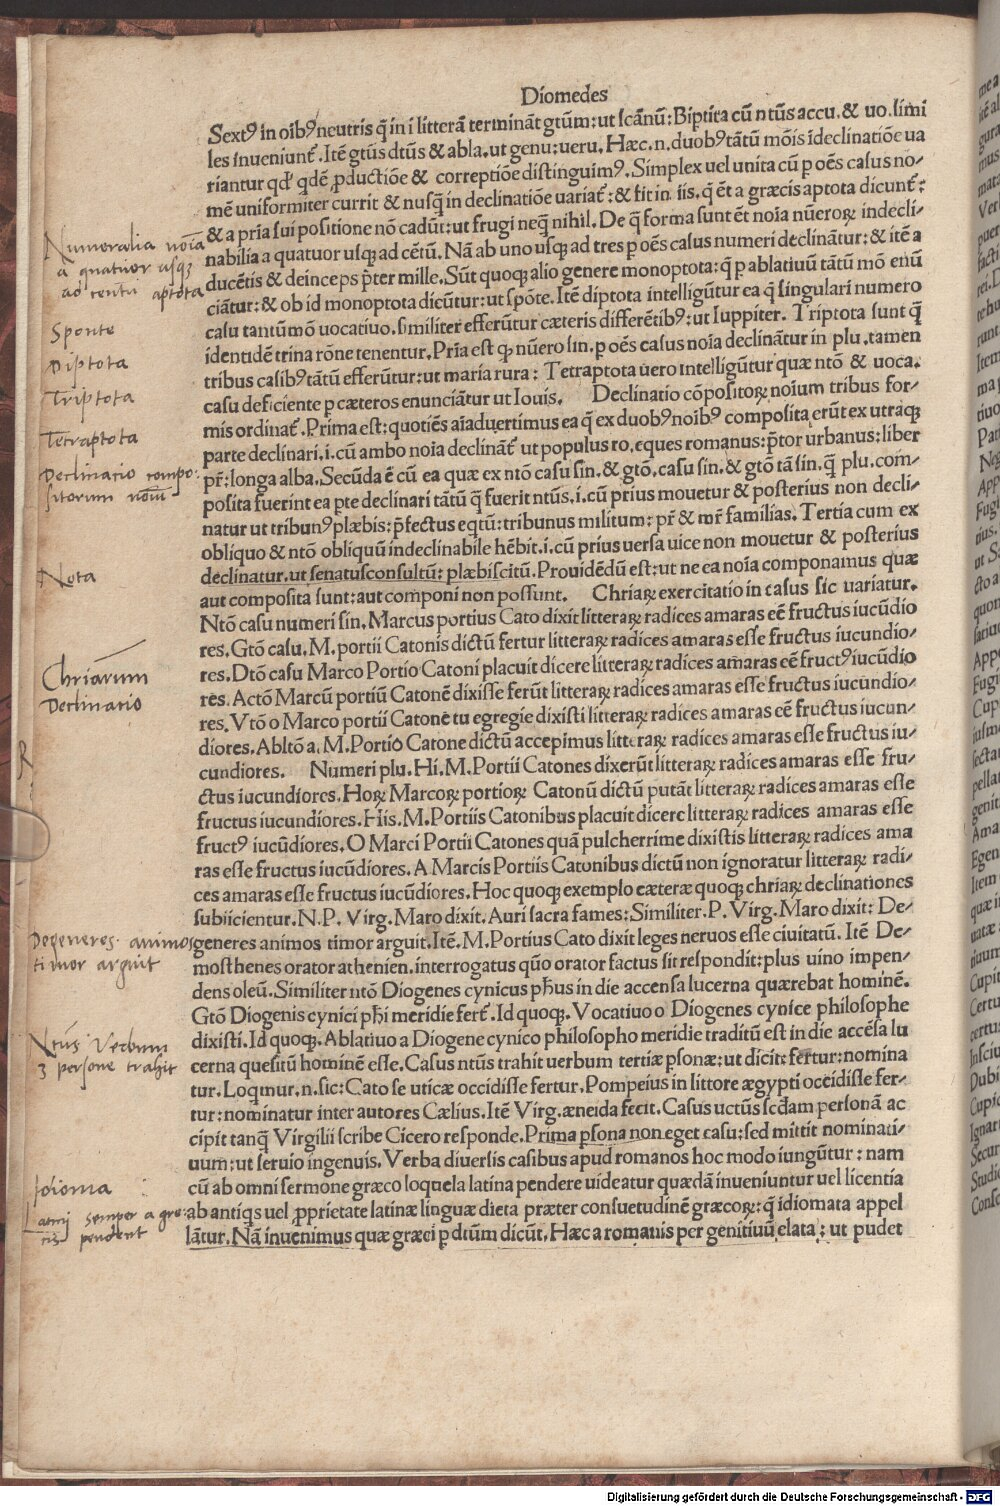 Diomedes
Sextꝰ in oibꝰ neutris q̄ in i litterā terminãt gtūm: ut scānū: Biptita cū ntūs accu. & uo. simi
les inueniunt̃. Itē gtūs dtūs & abla. ut genu: ueru. Hæc. n. duobꝰ tãtū mõis ideclinatiõe ua
riantur qd' qdē ꝓductiõe & correptiõe distinguimꝰ. Simplex uel unita cū p oēs casus no⸗
mē uniformiter currit & nusq̄ in declinatiõe uariat̃: & fit in iis. q̄ ēt a græcis aptota dicunt̃:
& a pria sui positione nō cadūt: ut frugi neq̄ nihil. De q̄ forma sunt ēt noīa nūeroꝝ indecli⸗
nabilia a quatuor usqꝫ ad cētū. Nã ab uno usqꝫ ad tres p oēs casus numeri declinãtur: & itē a
ducētis & deinceps p̄ter mille. Sūt quoqꝫ alio genere monoptota: q̄ p ablatiuū tãtū mō enū
ciãtur: & ob id monoptota dicūtur: ut spõte. Itē diptota intelligūtur ea q̄ singulari numero
casu tantūmō uocatiuo. similiter efferūtur cæteris differētibꝰ: ut Iuppiter. Triptota sunt q̄
identidē trina rōne tenentur. Pria est qꝫ nūero sin. p oēs casus noīa declinãtur in plu. tamen
tribus casibꝰ tãtū efferūtur: ut maria rura: Tetraptota uero intelligūtur quæ ntō & uoca.
casu deficiente p cæteros enunciãtur ut Iouis. Declinatio cōpositoꝝ noium tribus for⸗
mis ordinat̃. Prima est: quotiēs aiaduertimus ea q̄ ex duobꝰ noibꝰ composita erūt ex utraqꝫ
parte declinari. i. cū ambo noīa declinãt̃ ut populus ro. eques romanus: p̄tor urbanus: liber
pr̄: longa alba. Secūda ē cū ea quæ ex ntō casu sin. & gtō. casu sin. & gtō tã sin. q̄ plu. com⸗
posita fuerint ea pte declinari tãtū q̄ fuerit ntūs. i. cū prius mouetur & posterius non decli⸗
natur ut tribunꝰ plæbis: p̄fectus eqtū: tribunus militum: pr̄ & mr̄ familias. Tertia cum ex
obliquo & ntō obliquū indeclinabile hēbit. i. cū prius uersa uice non mouetur & posterius
declinatur. ut senatusconsultū: plæbiscitū. Prouidēdū est: ut ne ea noīa componamus quæ
aut composita sunt: aut componi non possunt. Chriaꝝ exercitatio in casus sic uariatur.
Ntō casu numeri sin. Marcus portius Cato dixit litteraꝝ radices amaras eē fructus iucūdio
res. Gtō casu. M. portii Catonis dictū fertur litteraꝝ radices amaras esse fructus iucundio⸗
res. Dtō casu Marco Portio Catoni placuit dicere litteraꝝ radices amaras eē fructꝰ iucūdio
res. Actō Marcū portiū Catonē dixisse ferūt litteraꝝ radices amaras esse fructus iucundio⸗
res. Vtō o Marco portii Catone tu egregie dixisti litteraꝝ radices amaras eē fructus iucun⸗
diores. Abltō a. M. Portio Catone dictū accepimus litteraꝝ radices amaras esse fructus iu⸗
cundiores. Numeri plu. Hi. M. Portii Catones dixerūt litteraꝝ radices amaras esse fru⸗
ctus iucundiores. Hoꝝ Marcoꝝ portioꝝ Catonū dictū putãt litteraꝝ radices amaras esse
fructus iucundiores. His. M. Portiis Catonibus placuit dicere litteraꝝ radices amaras esse
fructꝰ iucūdiores. O Marci Portii Catones quã pulcherrime dixistis litteraꝝ radices ama
ras esse fructus iucūdiores. A Marcis Portiis Catonibus dictū non ignoratur litteraꝝ radi⸗
ces amaras esse fructus iucūdiores. Hoc quoqꝫ exemplo cæteræ quoqꝫ chriaꝝ declinationes
subiicientur. N. P. Virg. Maro dixit. Auri sacra fames: Similiter. P. Virg. Maro dixit: De⸗
generes animos timor arguit. Itē. M. Portius Cato dixit leges neruos esse ciuitatū. Itē De⸗
mosthenes orator athenien. interrogatus quō orator factus sit respondit: plus uino impen⸗
dens oleū. Similiter ntō Diogenes cynicus ph̄us in die accensa lucerna quærebat hominē.
Gtō Diogenis cynici ph̄i meridie fert̃. Id quoqꝫ. Vocatiuo o Diogenes cynice philosophe
dixisti. Id quoqꝫ. Ablatiuo a Diogene cynico philosopho meridie traditū est in die accēsa lu
cerna quesitū hominē esse. Casus ntūs trahit uerbum tertiæ psonæ: ut dicit: fertur: nomina
tur. Loqmur. n. sic: Cato se uticæ occidisse fertur. Pompeius in littore ægypti occidisse fer⸗
tur: nominatur inter autores Cælius. Itē Virg. æneida fecit. Casus uctūs scd̄am personã ac
cipit tanq̄ Virgilii scribe Cicero responde. Prima psona non eget casu: sed mittit nominati⸗
uum: ut seruio ingenuis. Verba diuersis casibus apud romanos hoc modo iungūtur: nam
cū ab omni sermone græco loquela latina pendere uideatur quædã inueniuntur uel licentia
ab antiqs uel ꝓprietate latinæ linguæ dicta præter consuetudinē græcoꝝ: q̄ idiomata appel
lãtur. Nã inuenimus quæ græci p dtūm dicūt. Hæc a romanis per genitiuū elata: ut pudet
Numeralia noīa
a quatuor usqꝫ
ad centū aptota
Sponte
Diptota
Triptota
Tetraptota
Declinatio compo⸗
sitorum noīū
Nota
Chriarum
Declinatio
R
Degeneres animos
timor arguit
Ntūs Verbum
3 persone trahit
Idioma
Latini semper a gre⸗
cis pendent
Digitalisierung gefördert durch die Deutsche Forschungsgemeinschaft - DFG